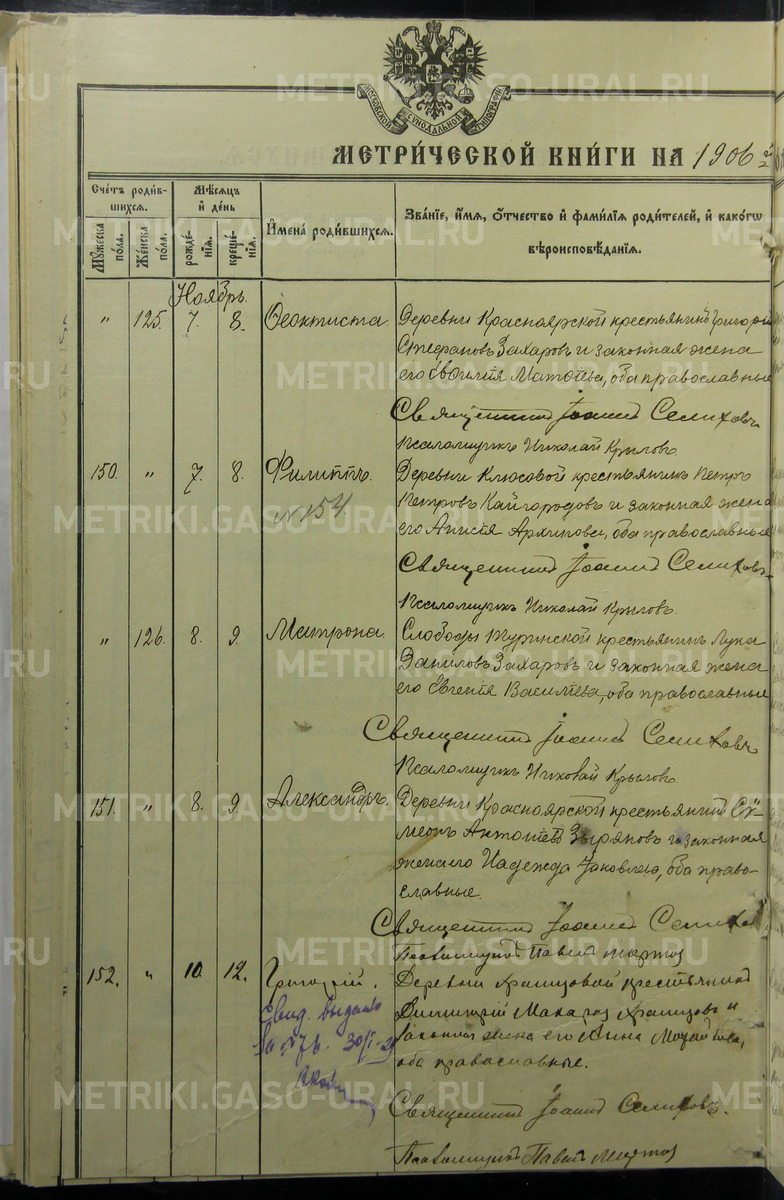 МОСКОВСКОЙ СѴНОДАЛЬНОЙ ТИПОГРАФІИ
МЕТРИ́ЧЕСКОЙ КНИ́ГИ НА 1906 г.
Сче́тъ роди́вшихся.
Му́жеска по́ла.
Же́нска по́ла.
Мѣ́сяцъ и҆ де́нь
рожде́нїя.
креще́нїя.
И҆мена̀ роди́вшихся.
Зва́нїе, и҆́мя, ѻ҆́тчество и҆ фами́лїя роди́телей, и҆ како́гѡ
вѣроисповѣ́данїя.
Ноябрь.
" 125. 7. 8. Ѳеоктиста.
Деревни Красноярской крестьянинъ Григорій
Стефановъ Захаровъ и законная жена
его, оба православные
Священникъ Іоаннъ Селиховъ
Псаломщикъ Николай Крыловъ.
150. " 7. 8. Филиппъ.
№154
Деревни Клюсовой крестьянинъ Петръ
Петровъ Кайгородовъ и законная жена
его Анисія Архипова, оба православные
Священникъ Іоаннъ Селиховъ
Псаломщикъ Николай Крыловъ.
" 126. 8. 9. Матрона.
Слободы Туринской крестьянинъ Лука
Даниловъ Захаровъ и законная жена
его Евгенія Васильева, оба православные
Священникъ Іоаннъ Селиховъ
Псаломщикъ Николай Крыловъ
151. " 8. 9. Александръ.
Деревни Красноярской крестьянинъ Си-
меонъ Антоніевъ Зыряновъ и законная
жена его Надежда Яковлева, оба право-
славные.
Священникъ Іоаннъ Селиховъ
Псаломщикъ Павелъ
152. " 10. 12. Григорій.
Свид. выдано
за №76. 30/I-29
Деревни Храмцовой крестьянинъ
Димитрій Макаровъ Храмцовъ и
законная жена его Анна,
оба православные.
Священникъ Іоаннъ Селиховъ.
Псаломщикъ Павелъ
METRIKI.GASO-URAL.RU